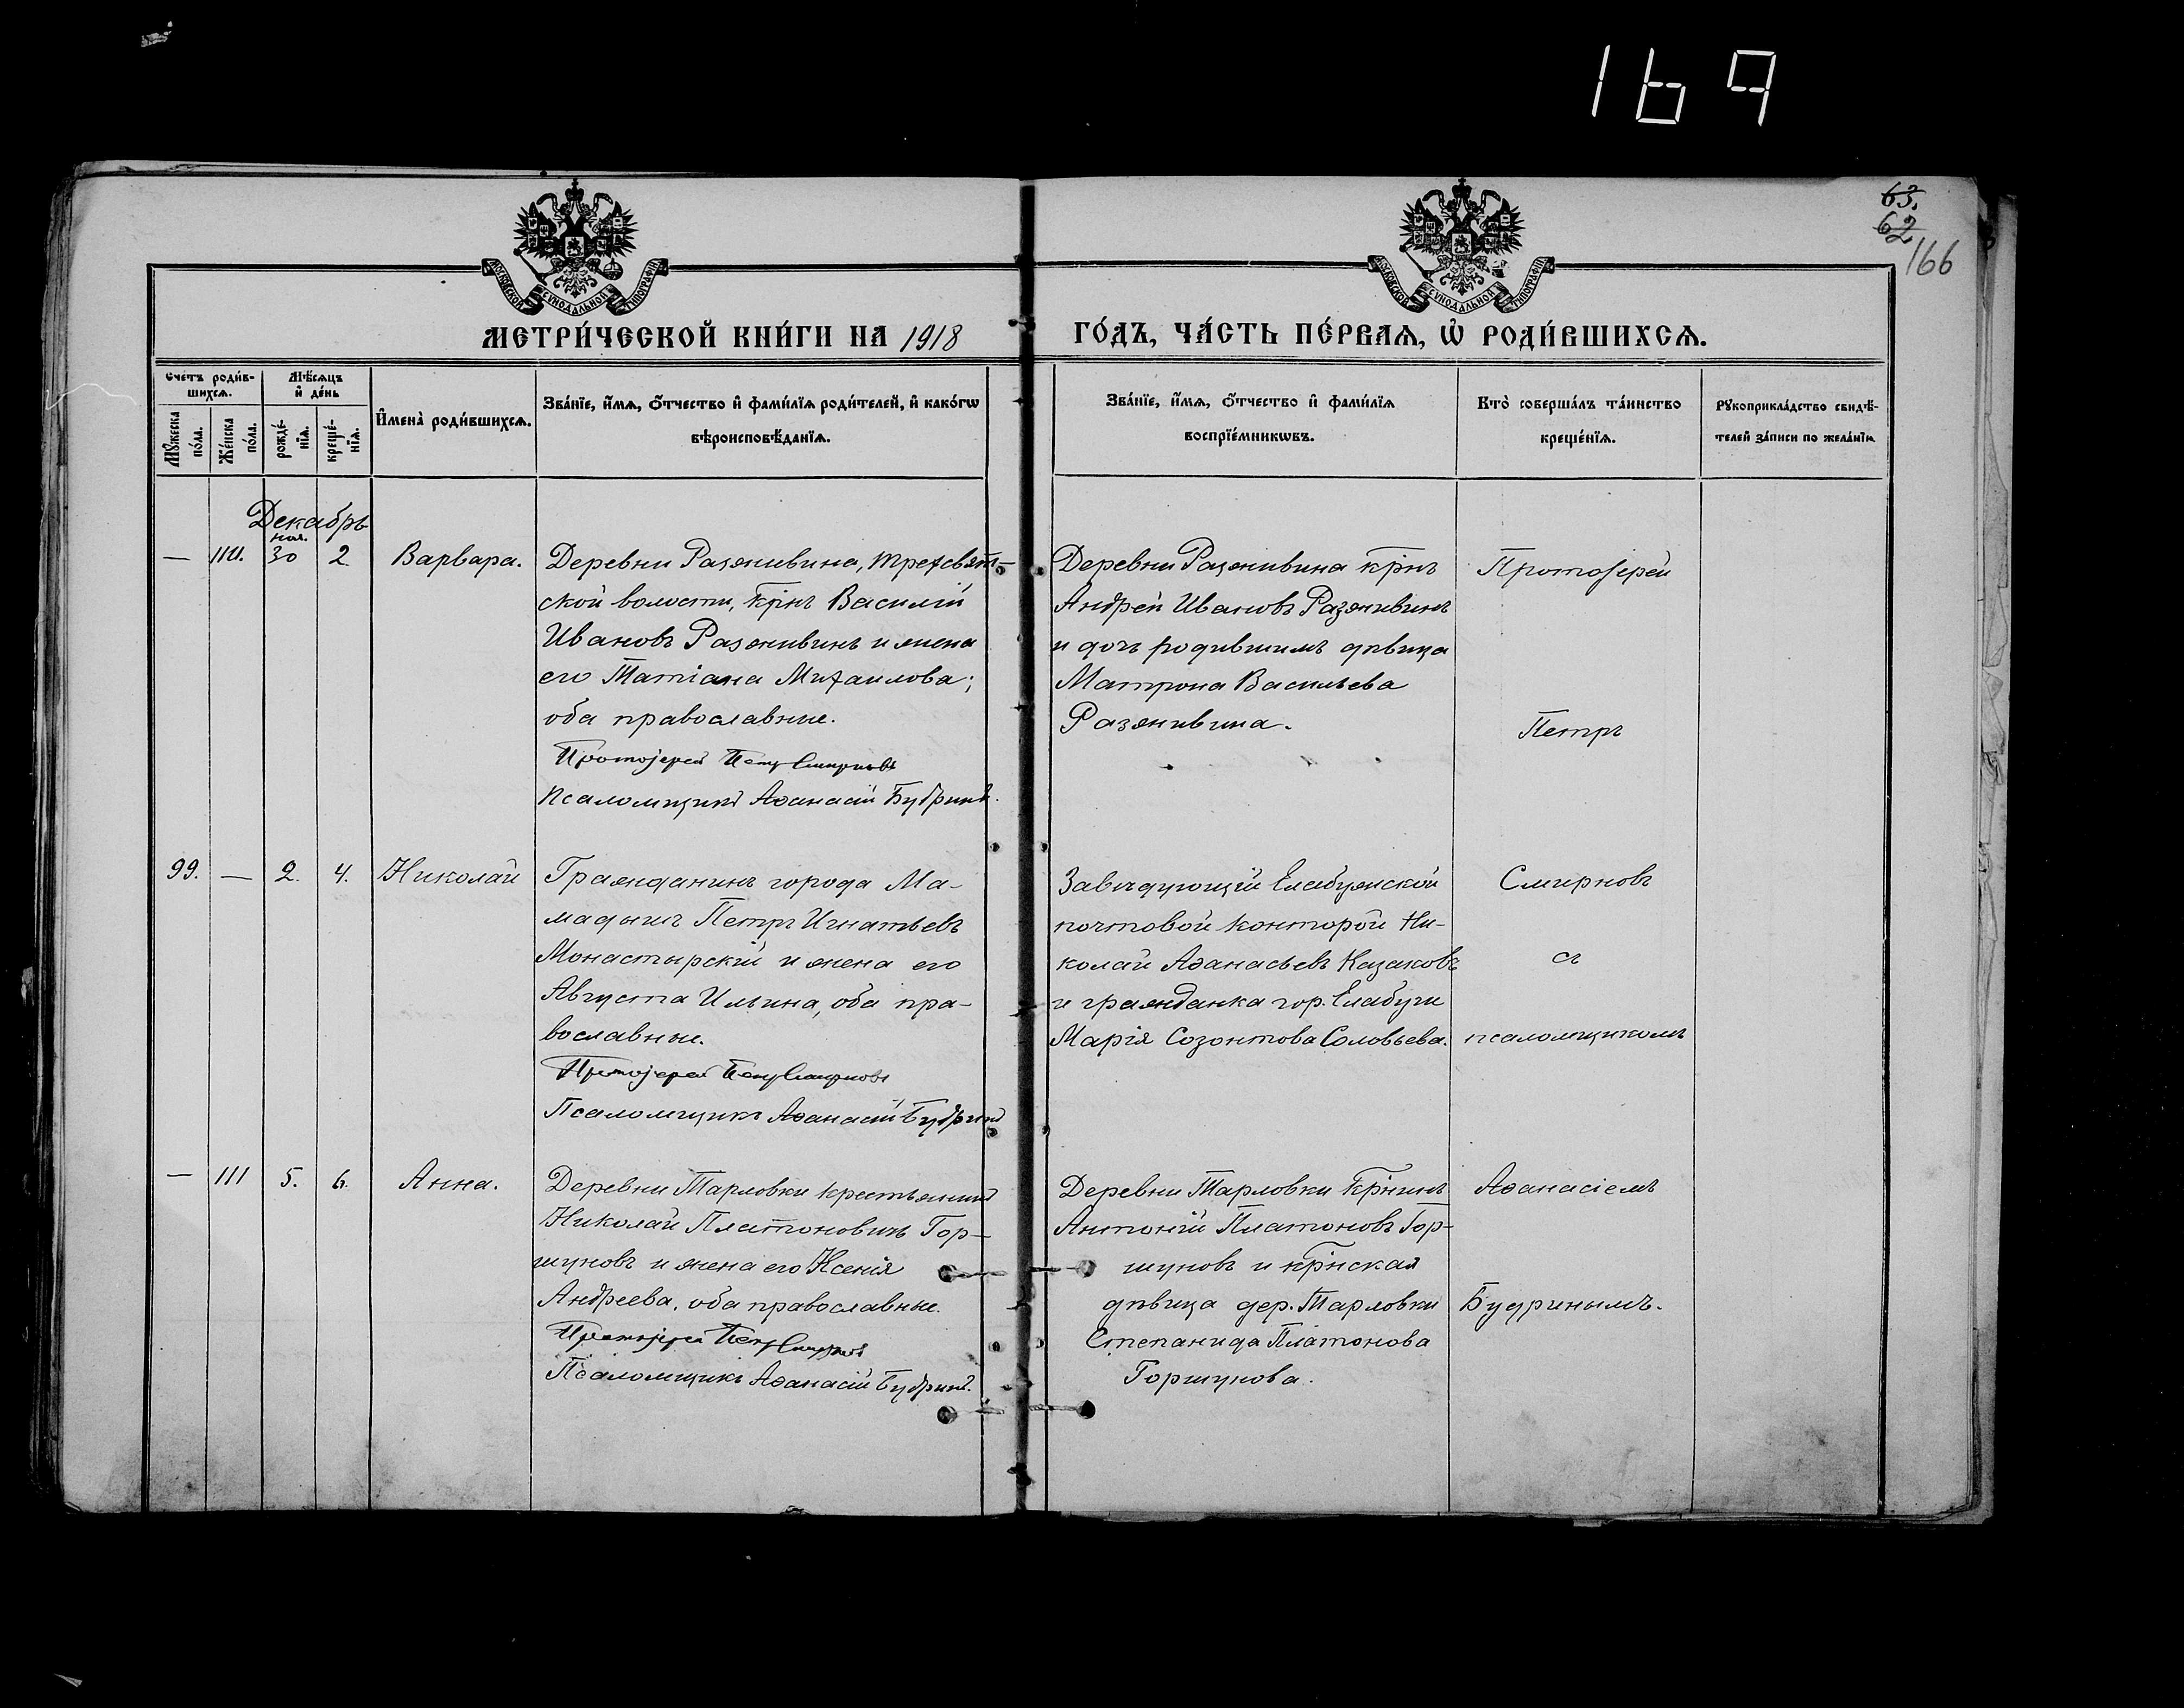 169
63.
62
166
МОСКОВСКОЙ СѴНОДАЛЬНОЙ ТИПОГРАФІИ
МОСКОВСКОЙ СѴНОДАЛЬНОЙ ТИПОГРАФІИ
МЕТРИ́ЧЕСКОЙ КНИ́ГИ НА 1918 ГО́ДЪ, ЧА́СТЬ ПЕ́РВАѦ, Ѡ҆ РОДИ́ВШИХСѦ.
Сче́тъ роди́в-
шихсѧ.
Мѣ́сѧцъ
и҆ де́нь
Мꙋ́жеска
по́ла.
Же́нска
по́ла.
рожде́-
нїѧ.
креще́-
нїѧ.
И҆мена̀ роди́вшихсѧ.
Зва́нїе, и҆́мѧ, ѻ҆́тчество и҆ фами́лїѧ роди́телей, и҆ како́гѡ
вѣроисповѣ́данїѧ.
Зва́нїе, и҆́мѧ, ѻ҆́тчество и҆ фами́лїѧ
воспрїе́мникѡвъ.
Кто̀ соверша́лъ та́инство
креще́нїѧ.
Рꙋкоприкла́дство свидѣ́-
телей за́писи по жела́нїю
Декабрь
— 110. ноя. 30 2 Варвара.
Деревни Разживина, Трехсвят-
ской волости, крнъ Василій
Ивановъ Разживинъ и жена
его Татіана Михаилова;
оба православные.
Протоіерей Петръ Смирновъ
Псаломщикъ Аѳанасій Будринъ.
Деревни Разживина крнъ
Андрей Ивановъ Разживинъ
и дочь родившимъ дѣвица
Матрона Васильева
Разживина.
Протоіерей
Петръ
99. — 2. 4. Николай
Гражданинъ города Ма-
мадыша Петръ Игнатьевъ
Монастырскій и жена его
Августа Ильина, оба пра-
вославные.
Протоіерей Петръ Смирновъ
Псаломщикъ Аѳанасій Будринъ
Завѣдующій Елабужской
почтовой конторой Ни-
колай Аѳанасьевъ Казаковъ
и гражданка гор. Елабуги
Марія Созонтова Соловьева.
Смирновъ
съ
псаломщикомъ
— 111 5. 6. Анна.
Деревни Тарловки крестьянинъ
Николай Платоновичъ Гор-
шуновъ и жена его Ксенія
Андреева, оба православные.
Протоіерей Петръ Смирновъ
Псаломщикъ Аѳанасій Будринъ.
Деревни Тарловки крнинъ
Антоній Платоновъ Гор-
шуновъ и крнская
дѣвица дер. Тарловки
Степанида Платонова
Горшунова.
Аѳанасіемъ
Будринымъ.